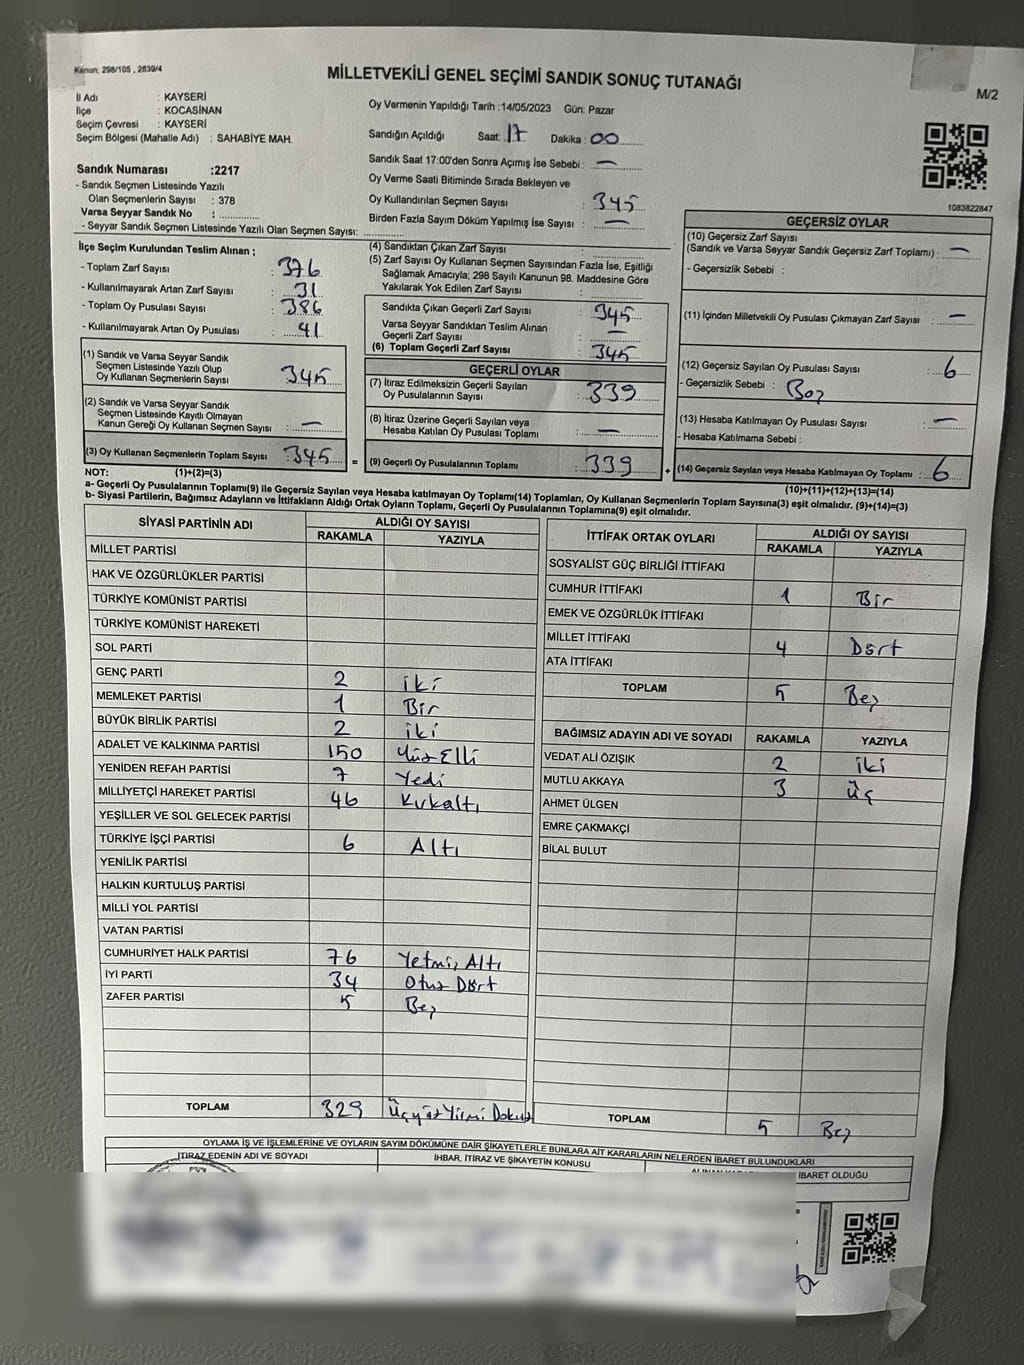 Kanun: 298/105 , 2839/4
MİLLETVEKİLİ GENEL SEÇİMİ SANDIK SONUÇ TUTANAĞI
M/2
İl Adı : KAYSERİ
İlçe : KOCASİNAN
Seçim Çevresi : KAYSERİ
Seçim Bölgesi (Mahalle Adı) : SAHABİYE MAH.
Sandık Numarası :2217
- Sandık Seçmen Listesinde Yazılı
Olan Seçmenlerin Sayısı : 378
Varsa Seyyar Sandık No :
- Seyyar Sandık Seçmen Listesinde Yazılı Olan Seçmen Sayısı:
Oy Vermenin Yapıldığı Tarih :14/05/2023 Gün: Pazar
Sandığın Açıldığı Saat: 17 Dakika : 00
Sandık Saat 17:00'den Sonra Açımış İse Sebebi : —
Oy Verme Saati Bitiminde Sırada Bekleyen ve
Oy Kullandırılan Seçmen Sayısı : 345
Birden Fazla Sayım Döküm Yapılmış İse Sayısı : —
1083822847
İlçe Seçim Kurulundan Teslim Alınan ;
- Toplam Zarf Sayısı : 376
- Kullanılmayarak Artan Zarf Sayısı : 31
- Toplam Oy Pusulası Sayısı : 386
- Kullanılmayarak Artan Oy Pusulası : 41
(1) Sandık ve Varsa Seyyar Sandık
Seçmen Listesinde Yazılı Olup
Oy Kullanan Seçmenlerin Sayısı : 345
(2) Sandık ve Varsa Seyyar Sandık
Seçmen Listesinde Kayıtlı Olmayan
Kanun Gereği Oy Kullanan Seçmen Sayısı : —
(3) Oy Kullanan Seçmenlerin Toplam Sayısı : 345
(4) Sandıktan Çıkan Zarf Sayısı :
(5) Zarf Sayısı Oy Kullanan Seçmen Sayısından Fazla İse, Eşitliği
Sağlamak Amacıyla; 298 Sayılı Kanunun 98. Maddesine Göre
Yakılarak Yok Edilen Zarf Sayısı :
Sandıkta Çıkan Geçerli Zarf Sayısı : 345
Varsa Seyyar Sandıktan Teslim Alınan
Geçerli Zarf Sayısı : —
(6) Toplam Geçerli Zarf Sayısı : 345
GEÇERLİ OYLAR
(7) İtiraz Edilmeksizin Geçerli Sayılan
Oy Pusulalarının Sayısı : 339
(8) İtiraz Üzerine Geçerli Sayılan veya
Hesaba Katılan Oy Pusulası Toplamı : —
= (9) Geçerli Oy Pusulalarının Toplamı : 339 +
GEÇERSİZ OYLAR
(10) Geçersiz Zarf Sayısı
(Sandık ve Varsa Seyyar Sandık Geçersiz Zarf Toplamı) : —
- Geçersizlik Sebebi :
(11) İçinden Milletvekili Oy Pusulası Çıkmayan Zarf Sayısı : —
(12) Geçersiz Sayılan Oy Pusulası Sayısı : 6
- Geçersizlik Sebebi : Boş
(13) Hesaba Katılmayan Oy Pusulası Sayısı : —
- Hesaba Katılmama Sebebi :
(14) Geçersiz Sayılan veya Hesaba Katılmayan Oy Toplamı : 6
NOT: (1)+(2)=(3)
(10)+(11)+(12)+(13)=(14)
a- Geçerli Oy Pusulalarının Toplamı(9) ile Geçersiz Sayılan veya Hesaba katılmayan Oy Toplamı(14) Toplamları, Oy Kullanan Seçmenlerin Toplam Sayısına(3) eşit olmalıdır. (9)+(14)=(3)
b- Siyasi Partilerin, Bağımsız Adayların ve İttifakların Aldığı Ortak Oyların Toplamı, Geçerli Oy Pusulalarının Toplamına(9) eşit olmalıdır.
SİYASİ PARTİNİN ADI ALDIĞI OY SAYISI
RAKAMLA YAZIYLA
MİLLET PARTİSİ
HAK VE ÖZGÜRLÜKLER PARTİSİ
TÜRKİYE KOMÜNİST PARTİSİ
TÜRKİYE KOMÜNİST HAREKETİ
SOL PARTİ
GENÇ PARTİ 2 iki
MEMLEKET PARTİSİ 1 Bir
BÜYÜK BİRLİK PARTİSİ 2 iki
ADALET VE KALKINMA PARTİSİ 150 Yüz Elli
YENİDEN REFAH PARTİSİ 7 Yedi
MİLLİYETÇİ HAREKET PARTİSİ 46 Kırkaltı
YEŞİLLER VE SOL GELECEK PARTİSİ
TÜRKİYE İŞÇİ PARTİSİ 6 Altı
YENİLİK PARTİSİ
HALKIN KURTULUŞ PARTİSİ
MİLLİ YOL PARTİSİ
VATAN PARTİSİ
CUMHURİYET HALK PARTİSİ 76 Yetmiş Altı
İYİ PARTİ 34 Otuz Dört
ZAFER PARTİSİ 5 Beş
TOPLAM 329 Üçyüz Yirmi Dokuz
İTTİFAK ORTAK OYLARI ALDIĞI OY SAYISI
RAKAMLA YAZIYLA
SOSYALİST GÜÇ BİRLİĞİ İTTİFAKI
CUMHUR İTTİFAKI 1 Bir
EMEK VE ÖZGÜRLÜK İTTİFAKI
MİLLET İTTİFAKI 4 Dört
ATA İTTİFAKI
TOPLAM 5 Beş
BAĞIMSIZ ADAYIN ADI VE SOYADI RAKAMLA YAZIYLA
VEDAT ALİ ÖZIŞIK 2 iki
MUTLU AKKAYA 3 üç
AHMET ÜLGEN
EMRE ÇAKMAKÇİ
BİLAL BULUT
TOPLAM 5 Beş
OYLAMA İŞ VE İŞLEMLERİNE VE OYLARIN SAYIM DÖKÜMÜNE DAİR ŞİKAYETLERLE BUNLARA AİT KARARLARIN NELERDEN İBARET BULUNDUKLARI
İTİRAZ EDENİN ADI VE SOYADI İHBAR, İTİRAZ VE ŞİKAYETİN KONUSU İBARET OLDUĞU